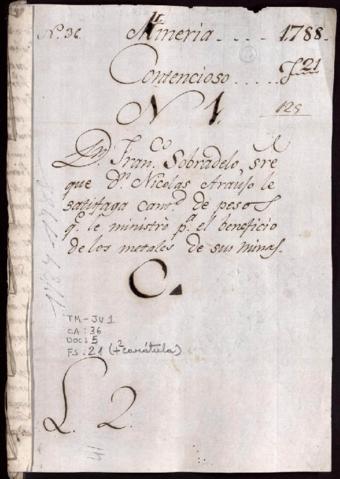 N. 36. Mineria . . . . 1788.
Contencioso . . . . . 21
N 1.
125
Dn. Franco. Sobradelo, sre
que Dn. Nicolas Araujo le
satisfaga cantd. de pesos
qe. le ministro pa. el beneficio
de los metales de sus minas.
C.
1787 1788
TM-JU1
CA: 36
DOC: 5
FS: 21 (+2 carátula)
L. 2.